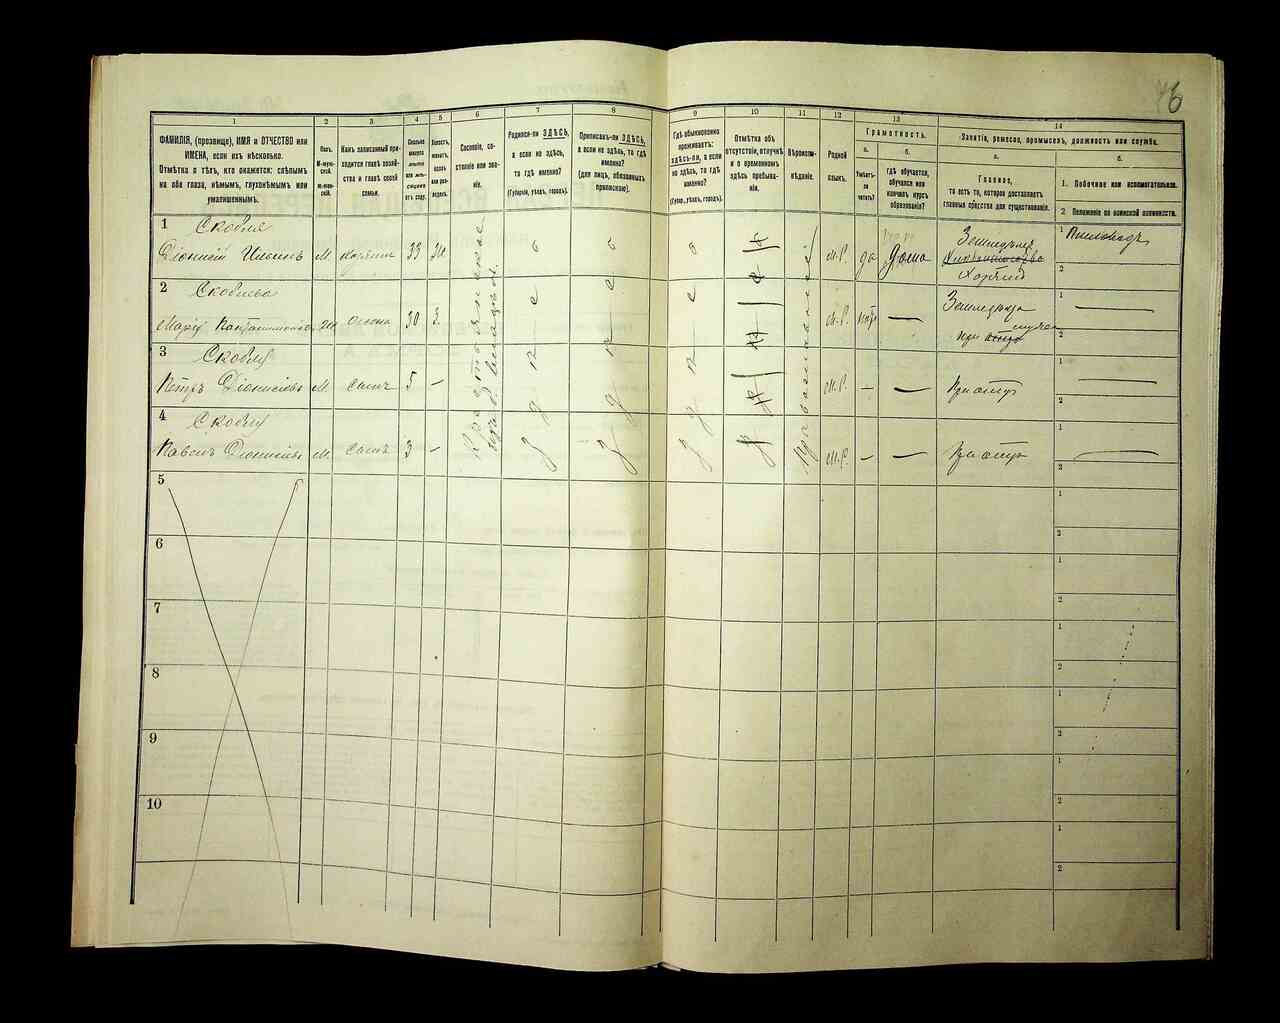 46
1 2 3 4 5 6 7 8 9 10 11 12 13 14
ФАМИЛІЯ, (прозвище), ИМЯ и ОТЧЕСТВО или
ИМЕНА, если ихъ нѣсколько.
Отмѣтка о тѣхъ, кто окажется: слѣпымъ
на оба глаза, нѣмымъ, глухонѣмымъ или
умалишеннымъ.
Полъ.
М-муж-
ской.
Ж-жен-
скій.
Какъ записанный при-
ходится главѣ хозяй-
ства и главѣ своей
семьи.
Сколько
минуло
лѣтъ
или мѣ-
сяцевъ
отъ роду.
Холостъ,
женатъ,
вдовъ
или раз-
веденъ.
Сословіе, со-
стояніе или зва-
ніе.
Родился-ли ЗДѢСЬ,
а если не здѣсь,
то гдѣ именно?
(Губернія, уѣздъ, городъ).
Приписанъ-ли ЗДѢСЬ,
а если не здѣсь, то гдѣ
именно?
(для лицъ, обязанныхъ
припискою).
Гдѣ обыкновенно
проживаетъ:
здѣсь-ли, а если
не здѣсь, то гдѣ
именно?
(Губер., уѣздъ, городъ).
Отмѣтка объ
отсутствіи, отлучкѣ
и о временномъ
здѣсь пребыва-
ніи.
Вѣроиспо-
вѣданіе.
Родной
языкъ.
Грамотность.
а.
Умѣетъ-
ли
читать?
б.
гдѣ обучается,
обучался или
кончилъ курсъ
образованія?
Занятіе, ремесло, промыселъ, должность или служба.
а.
Главное,
то есть то, которое доставляетъ
главныя средства для существованія.
б.
1. Побочное или вспомогательное.
2. Положеніе по воинской повинности.
1 Скобля
Діонисій Ильинъ М хозяинъ 33 Ж да Дома Земледѣлецъ
Хозяинъ
Крестьянинъ
Православный
здѣсь здѣсь здѣсь
М.Р.
2 Скоблева
Марія 30 З. М.Р. нѣтъ — Земледѣліе
при мужѣ
3 Скобля
Петръ Діонисіевъ М сынъ 5 — М.Р. — — При отцѣ
4 Скобля
Павелъ Діонисіевъ М сынъ 3 — М.Р. — — При отцѣ
5
6
7
8
9
10